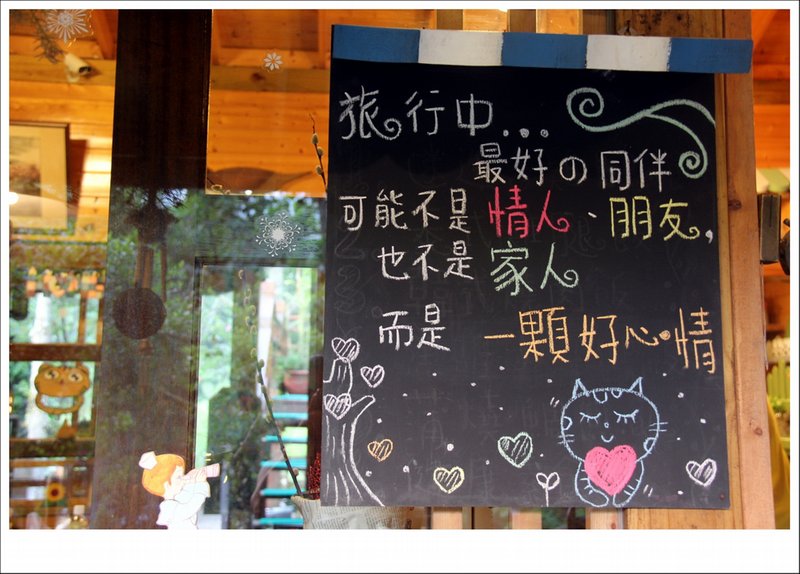 旅行中...
最好の同伴
可能不是情人、朋友,
也不是家人
而是 一顆好心情